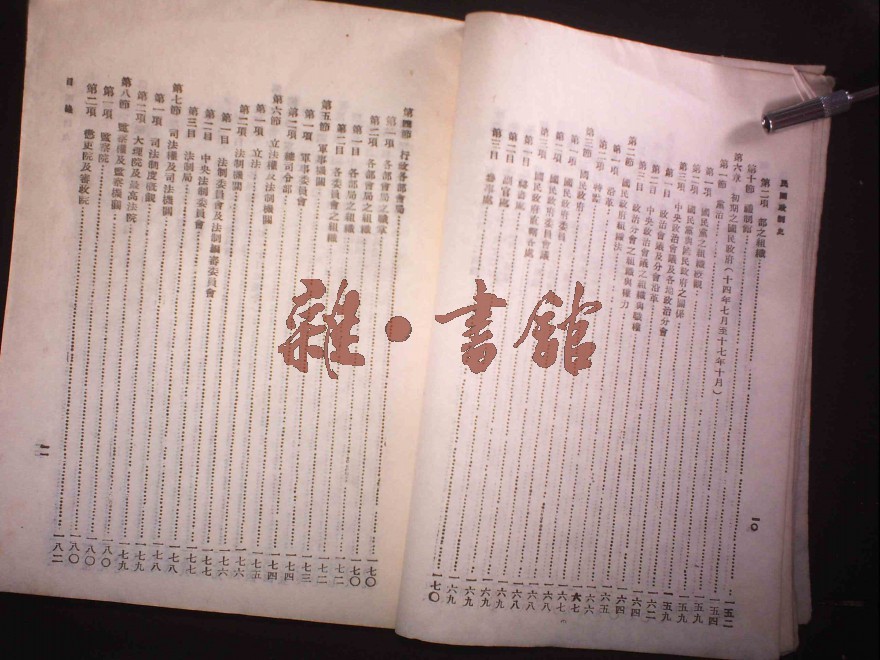 民國政制史
一〇
第二項 部之組織……一五二
第十節……一五四
第六章 初期之國民政府(十四年七月至十七年十月)……一五九
第一節 黨治……一五九
第一項 國民黨之組織……一五九
第二項 國民黨與國民政府之關係……一六二
第三項 政治會議及各地政治分會……一六四
第一目 政治會議及分會沿革……一六四
第二目 中央政治會議之組織與職權……一六五
第三目 政治分會之組織與權力……一六六
第二節 國民政府組織法……一六七
第一項 沿革……一六七
第二項 特點……一六八
第三節 國民政府……一六八
第一項 國民政府委員……一六八
第二項 國民政府委員會議……一六九
第三項 國民政府直轄各處……一六九
第一目 祕書處……一六九
第二目 副官處……一六九
第三目 參事處……一七〇
第四節 行政各部會局……一七〇
第一項 各部會局之職掌……一七〇
第二項 各部會局之組織……一七二
第一目 各部局之組織……一七二
第二目 各委員會之組織……一七三
第五節 軍事機關……一七四
第一項 軍事委員會……一七四
第二項 總司令部……一七五
第六節 立法權及法制機關……一七六
第一項 立法……一七六
第二項 法制機關……一七七
第一目 法制委員會及法制編審委員會……一七七
第二目 中央法制委員會……一七八
第三目 法制局……一七八
第七節 司法權及司法機關……一七九
第一項 司法制度概觀……一七九
第二項 大理院及最高法院……一八〇
第八節 監察權及監察機關……一八〇
第一項 監察院……一八〇
第二項 懲吏院及審政院……一八二
目錄
一一
雜·書館